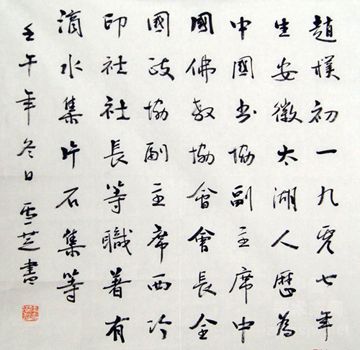 趙樸初一九零七年
生安徽太湖人歷為
中國书協副主席中
國佛教協會會長全
國政協副主席西泠
印社社長等職著有
滴水集片石集等
壬午年冬日雲芝書